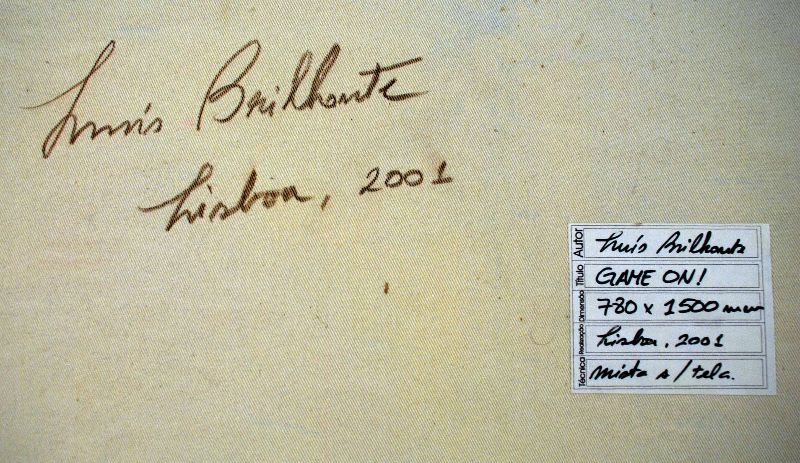 Luís Brilhante
Lisboa, 2001
Autor Luís Brilhante
Título GAME ON!
Dimensão 780 x 1500 mm
Realização Lisboa, 2001
Técnica mista s/tela.